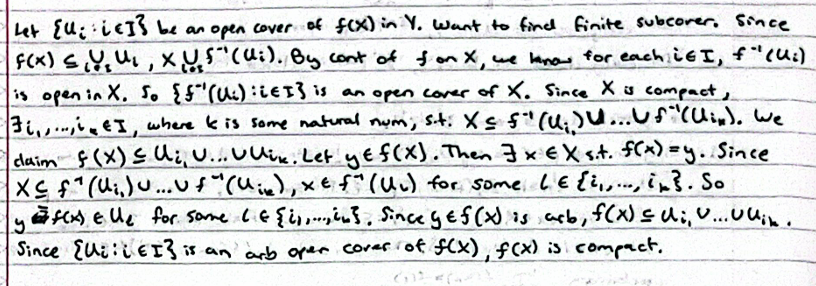 Let {Uᵢ : i ∈ I} be an open cover of f(X) in Y. Want to find finite subcover. Since
f(X) ⊆ ⋃ᵢ∈I Uᵢ, X ⋃ᵢ∈I f⁻¹(Uᵢ). By cont of f on X, we know for each i ∈ I, f⁻¹(Uᵢ)
is open in X. So {f⁻¹(Uᵢ) : i ∈ I} is an open cover of X. Since X is compact,
∃ i₁, ..., iₖ ∈ I, where k is some natural num, s.t. X ⊆ f⁻¹(Uᵢ₁) ∪ ... ∪ f⁻¹(Uᵢₖ). We
claim f(X) ⊆ Uᵢ₁ ∪ ... ∪ Uᵢₖ. Let y ∈ f(X). Then ∃ x ∈ X s.t. f(x) = y. Since
X ⊆ f⁻¹(Uᵢ₁) ∪ ... ∪ f⁻¹(Uᵢₖ), x ∈ f⁻¹(U_l) for some l ∈ {i₁, ..., iₖ}. So
y = f(x) ∈ U_l for some l ∈ {i₁, ..., iₖ}. Since y ∈ f(X) is arb, f(X) ⊆ Uᵢ₁ ∪ ... ∪ Uᵢₖ.
Since {Uᵢ : i ∈ I} is an arb open cover of f(X), f(X) is compact.